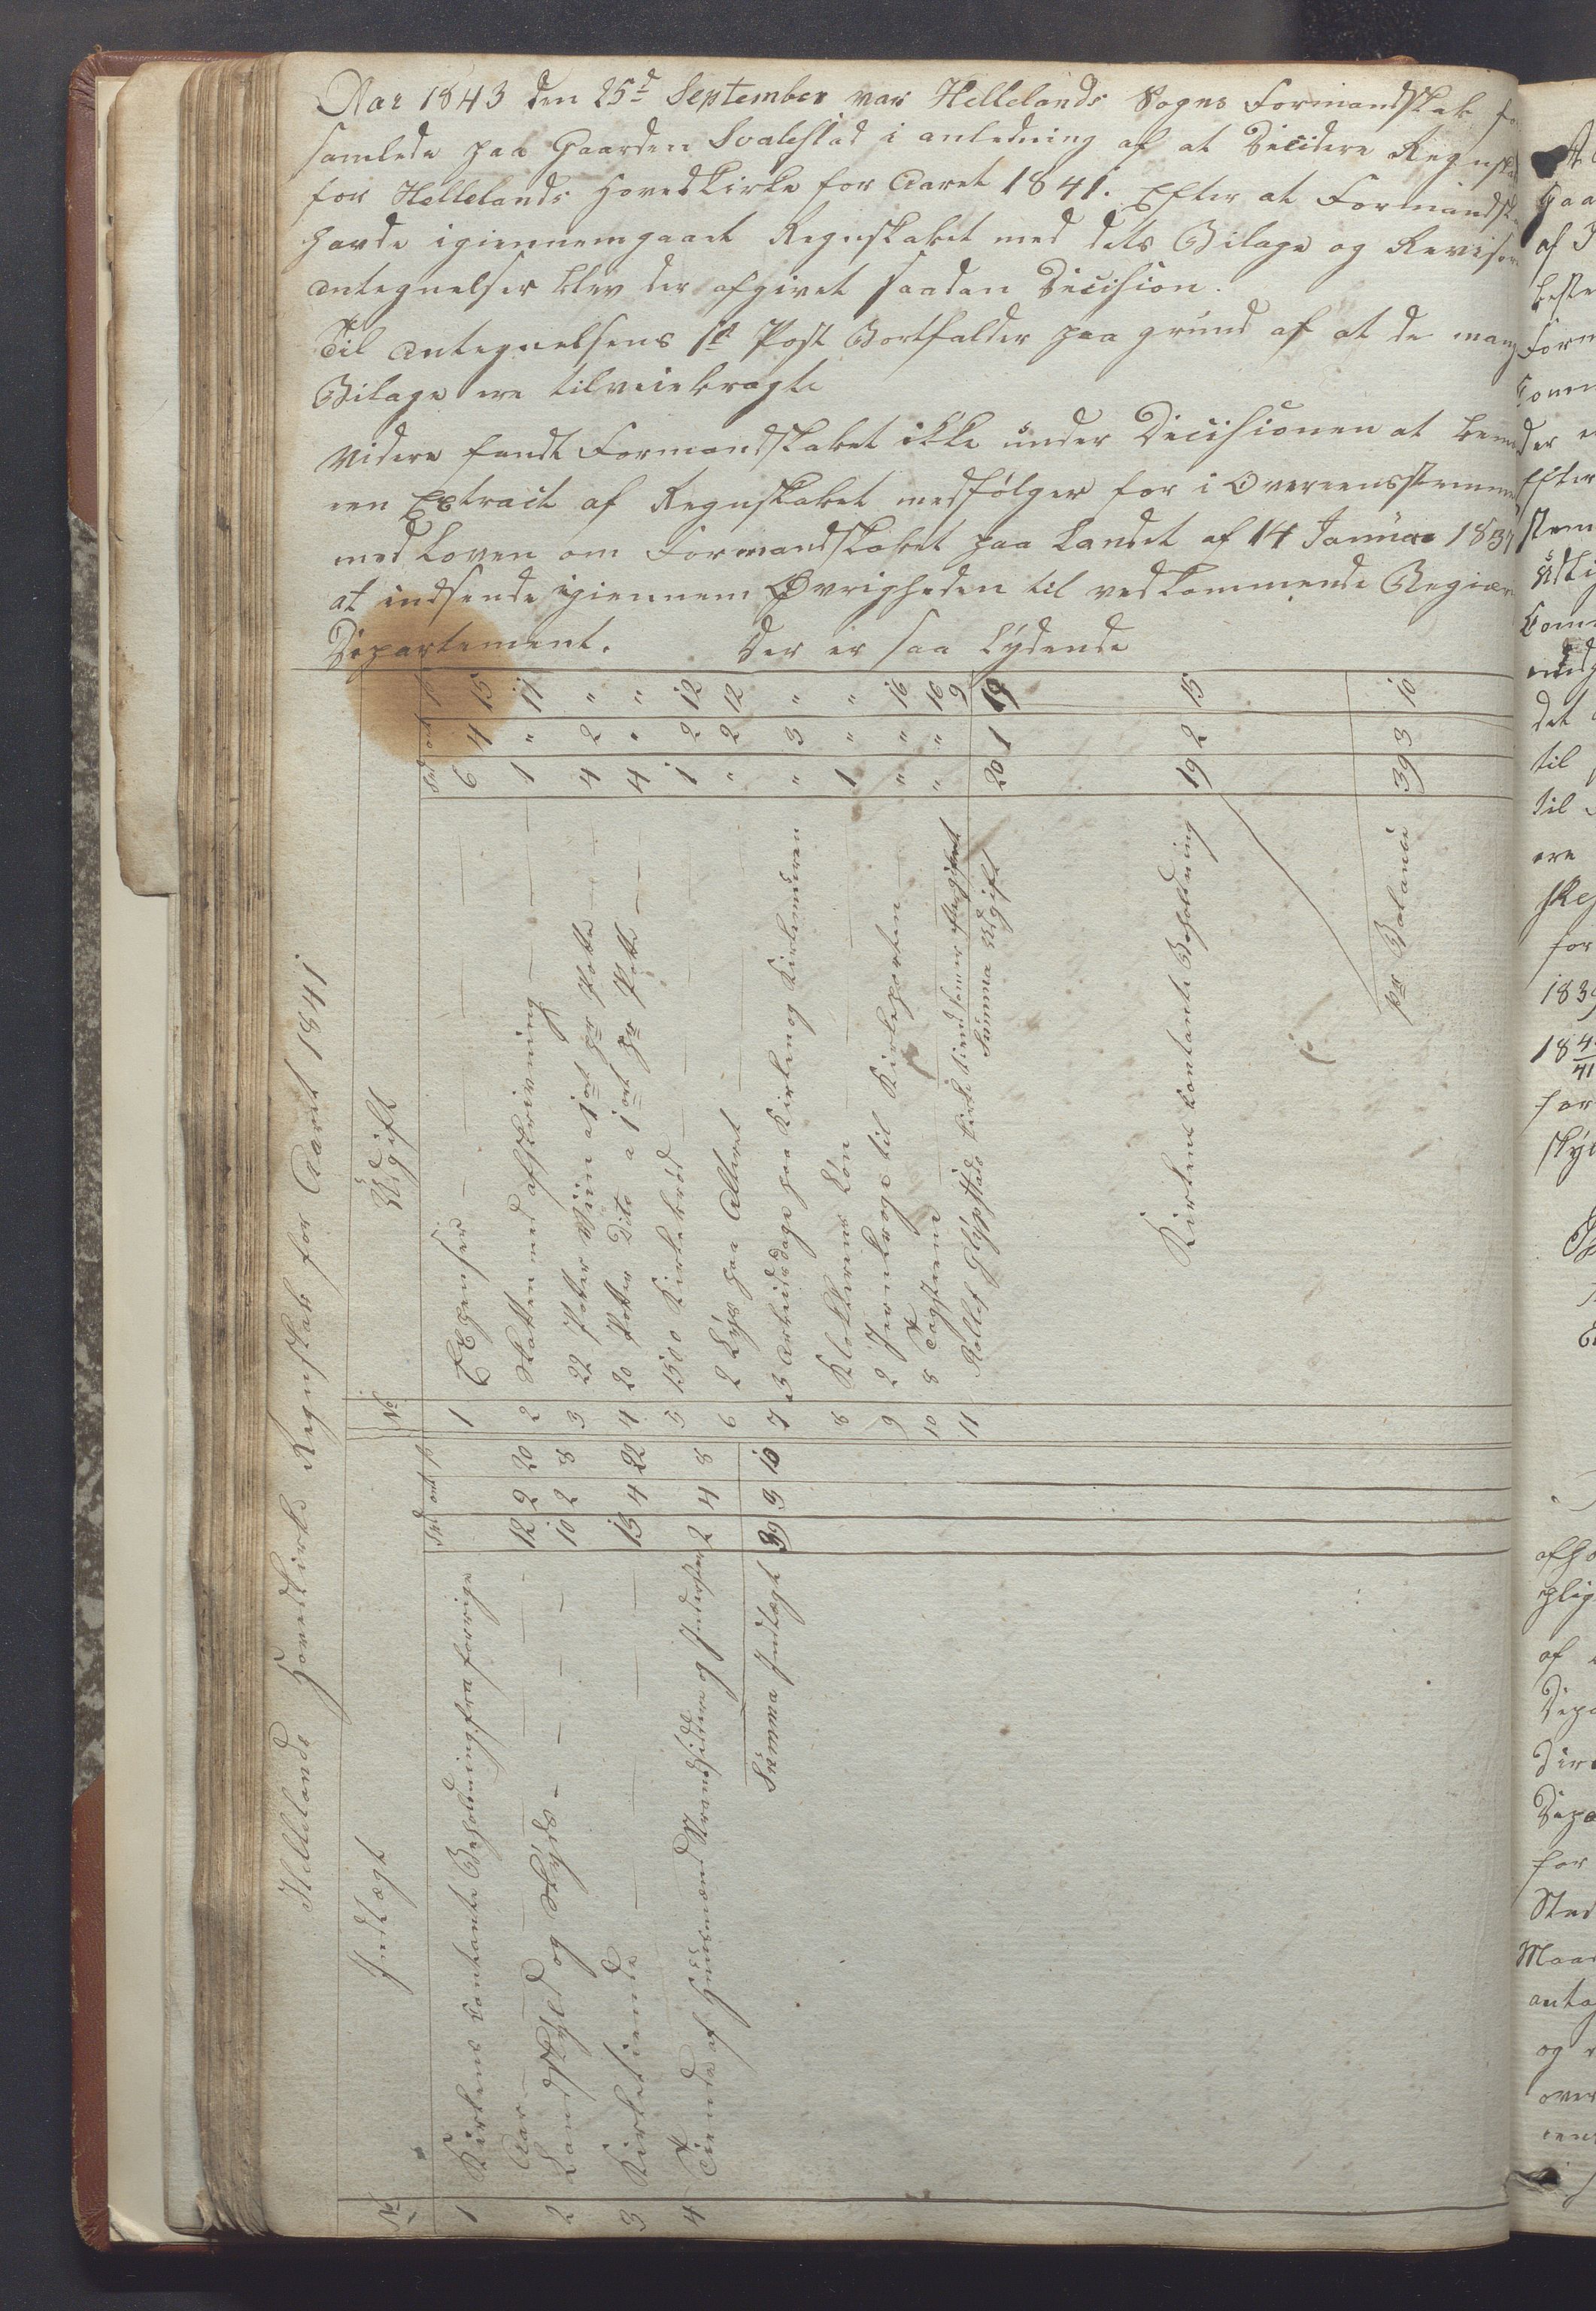 Aar 1843 den 25d September var Hellelands Sogns Formandskab fo
samlede paa Gaarden Svalestad i anledning af at Decidere Regnska
for Hellelands Hovedkirke for Aaret 1841. Efter at Formandska
havde igiennemgaaet Regnskabet med dets Bilage og Revisore
antegnelser blev der afgivet saadan Decision.
Til antegnelsens 1st Post Bortfalder paa grund af at de mang
Bilage ere tilveiebragte
Videre fandt Formandskabet ikke under Decisionen at bem
en Extract af Regnskabet medfølger for i Overeensstemme
med Loven om Formandskabet paa Landet af 14 Januar 1837
at indsende igiennem Øvrigheden til vedkommende Regiær
Departement. Der er saa Lydende
Hellelands Hovedkirkes Regnskab for Aaret 1841
No Indtægt Spd ort s
1 Kirkens contante Beholdning fra forrige
Aar 12 2 20
2 Landskyld og Skyds 10 2 8
3 Kirketiende 13 4 22
4 Tiende af Huusmænd Strandsiddere og Inderster 2 4 8
Summa Indtægt 39 3 10
No Udgift Spd ort s
1 Expenser 6 4 15
2 Skatten med afskrivning 1 " 11
3 22 Potter Viin a 1 ort pr Potte 4 2 "
4 20 Potter Dito a 1 ort pr Potte 4 " "
5 1500 Kirkebrød 1 2 12
6 2 Lys paa Alteret " 2 12
7 3 Arbeidsdage paa Kirken og Kirkemuren " 3 "
8 Klokkerens Løn 1 " "
9 2 Jernkroge til Kirkeporten " " 16
10 8 Tagsteene " " 16
11 Rollef GLypstads Kirketiend som er " " 9
Summa Udgift 20 1 19
Kirkens contante Beholdning 19 2 15
pr Balance 39 3 10